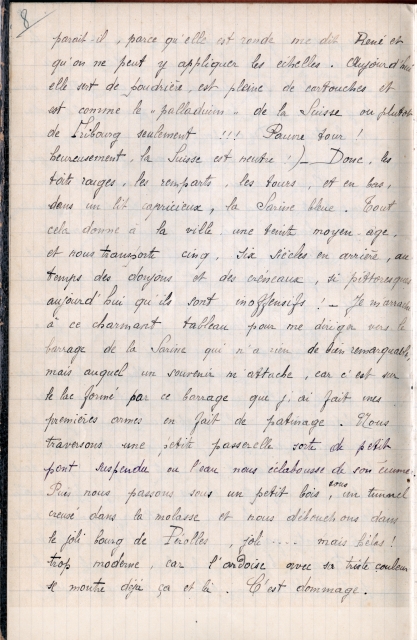 8
paraît-il, parce qu'elle est ronde me dit René et
qu'on ne peut y appliquer les échelles. Aujourd'hui
elle sert de poudrière, est pleine de cartouches et
est comme le "palladium" de la Suisse ou plutôt
de Fribourg seulement !!! Pauvre tour !
heureusement, la Suisse est neutre !) — Donc, les
toits rouges, les remparts, les tours, et en bas,
dans un lit capricieux, la Sarine bleue. Tout
cela donne à la ville une teinte moyen-âge,
et nous transporte cinq, six siècles en arrière, au
temps des donjons et des créneaux, si pittoresques
aujourd'hui qu'ils sont inoffensifs ! — Je m'arrache
à ce charmant tableau pour me diriger vers le
barrage de la Sarine qui n'a rien de bien remarquable
mais auquel un souvenir m'attache, car c'est sur
le lac formé par ce barrage que j'ai fait mes
premières armes en fait de patinage. Nous
traversons une petite passerelle sorte de petit
pont suspendu où l'eau nous éclabousse de son écume.
Puis nous passons sous un petit bois, sous un tunnel
creusé dans la molasse et nous débouchons dans
le joli bourg de Pérolles, joli .... mais hélas !
trop moderne, car l'ardoise avec sa triste couleur
se montre déjà ça et là. C'est dommage.